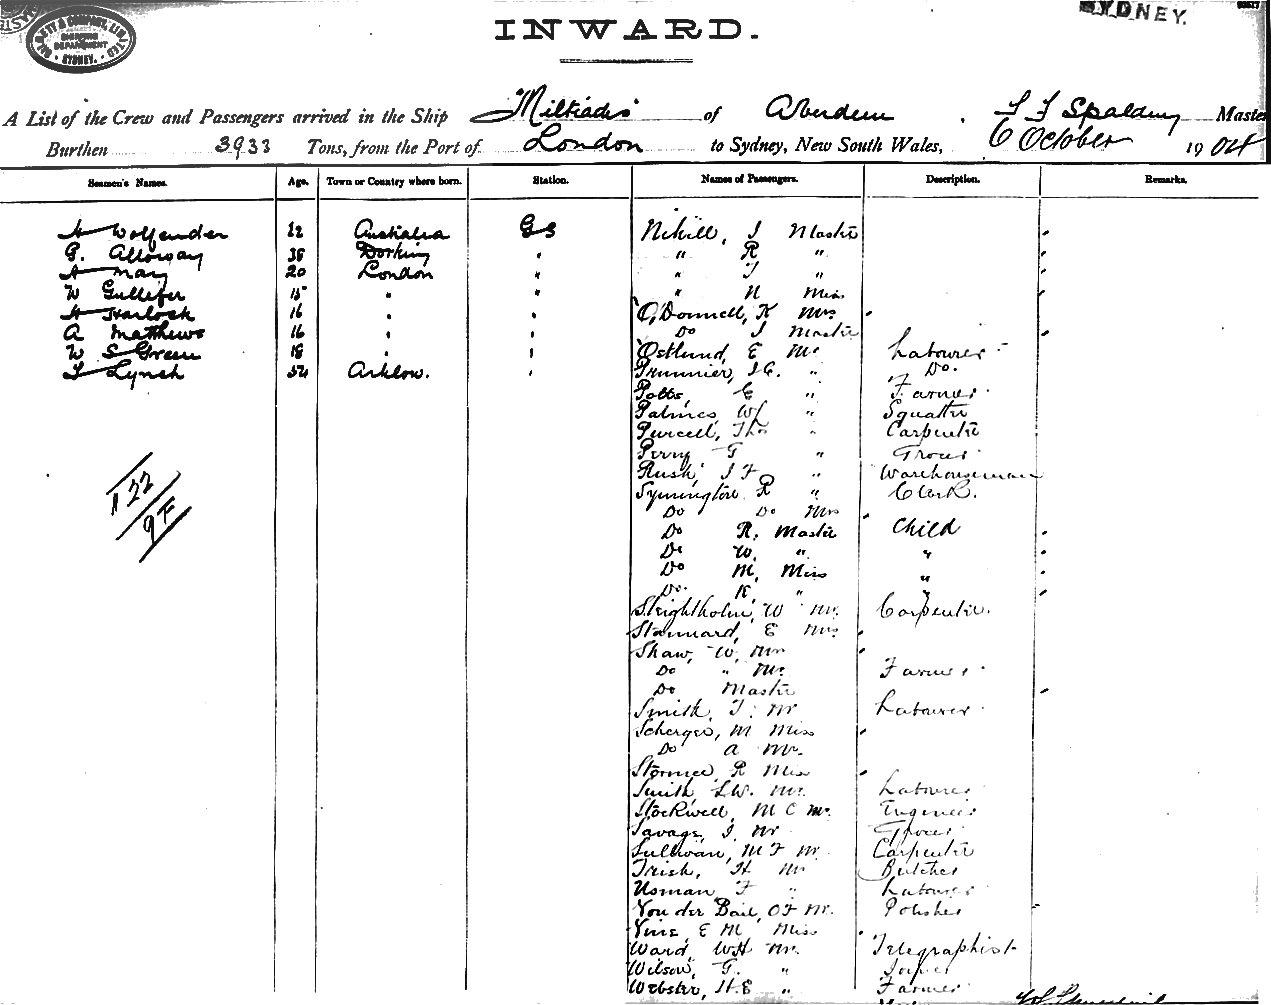 SYDNEY.
INWARD.
A List of the Crew and Passengers arrived in the Ship Miltiades of Aberdeen, Master
Burthen 3933 Tons, from the Port of London to Sydney, New South Wales, 6 October 1904
Seamen's Names. Age. Town or Country where born. Station. Names of Passengers. Description. Remarks.
A Wolfender 22 Australia GS Nihill, J Master
G. 38 Dorking " " R "
A May 20 London " " T "
W Gullifer 15 " " " N Miss
H Harlock 16 " " O'Donnell, K Mrs
A Matthews 16 " " Do J Master
W S Green 18 " " Ostlund, E Mr Labourer
T Lynch 54 Arklow. " Prunnier, J E. " Do.
Potts, E " Farmer
Palmer, W " Squatter
Purcell, Thos " Carpenter
Perry G " Grocer
Rusk, J F " Warehouseman
122
9F
Symington R " Clerk.
Do Do Mrs
Do R, Master Child
Do W. " "
Do M, Miss "
Do. K, " "
Sleightholm, W Mr. Carpenter.
Stannard, E Mrs
Shaw, W, Mrs
Do " Mr. Farmer
Do Master
Smith, T. Mr Labourer
Scherger, M Miss
Do A Mr.
R Miss
Smith, L.W. Mr. Labourer
Stockwell, M C Mr. Engineer
Savage, J. Mr Grocer
Sullivan, M F Mr. Carpenter
Trish, H Mr Butcher
Usman, F " Labourer
Von der Bail, O F Mr. Polisher
Vine, E M Miss
Ward, W H Mr. Telegraphist
Wilson, G. "
Webster, H E " Farmer